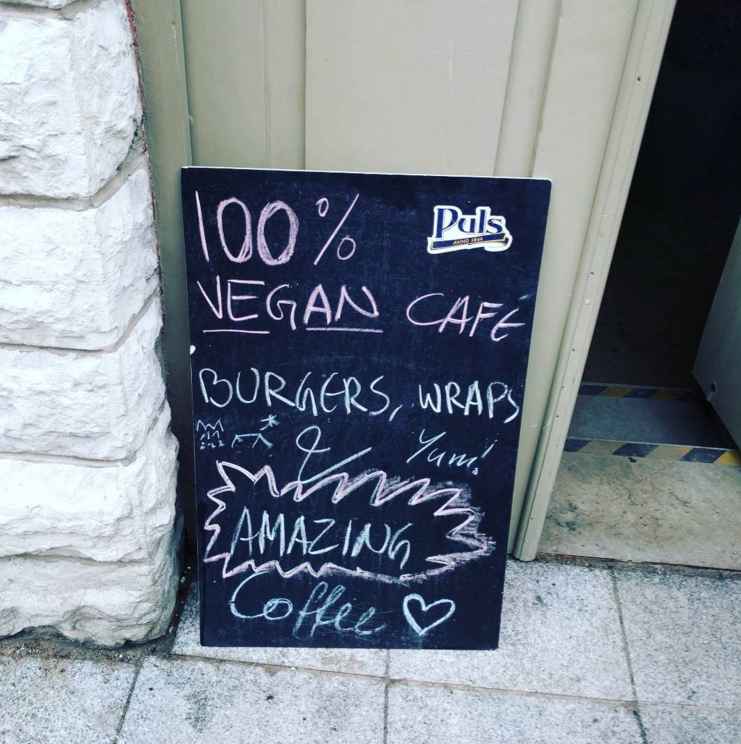 100%
Puls
ANNO 1844
VEGAN CAFE
BURGERS, WRAPS
&
Yum!
AMAZING
Coffee